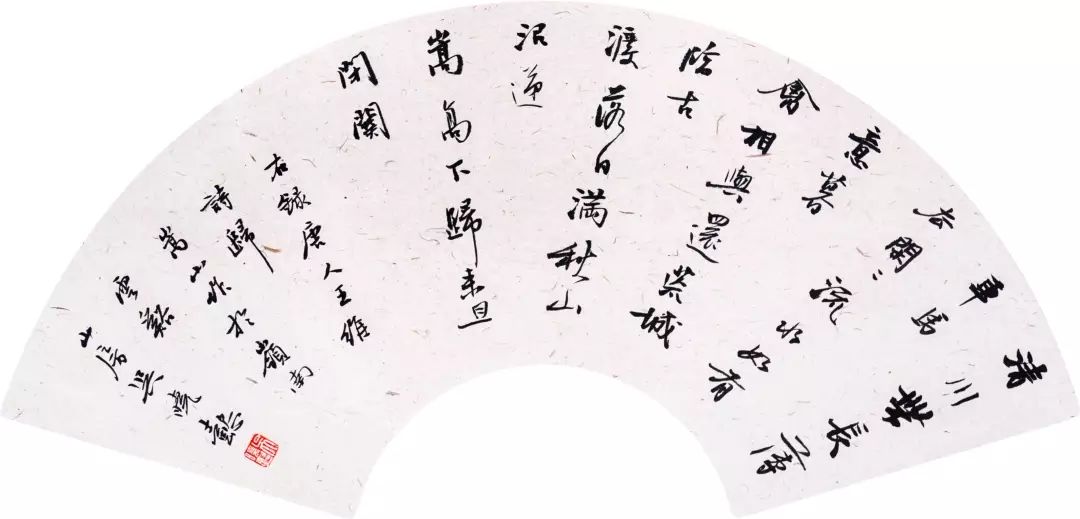 清川帶長薄
車馬
去閑〻流水如有
意暮
禽相與還荒城
臨古
渡落日滿秋山
迢遞
嵩高下歸來且
閉關
右錄唐人王維
詩歸
嵩山作於嶺南
雲谿
山房吳曉懿